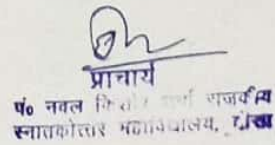 प्राचार्य
पं० नवल किशोर शर्मा राजकीय
स्नातकोत्तर महाविद्यालय, दौसा